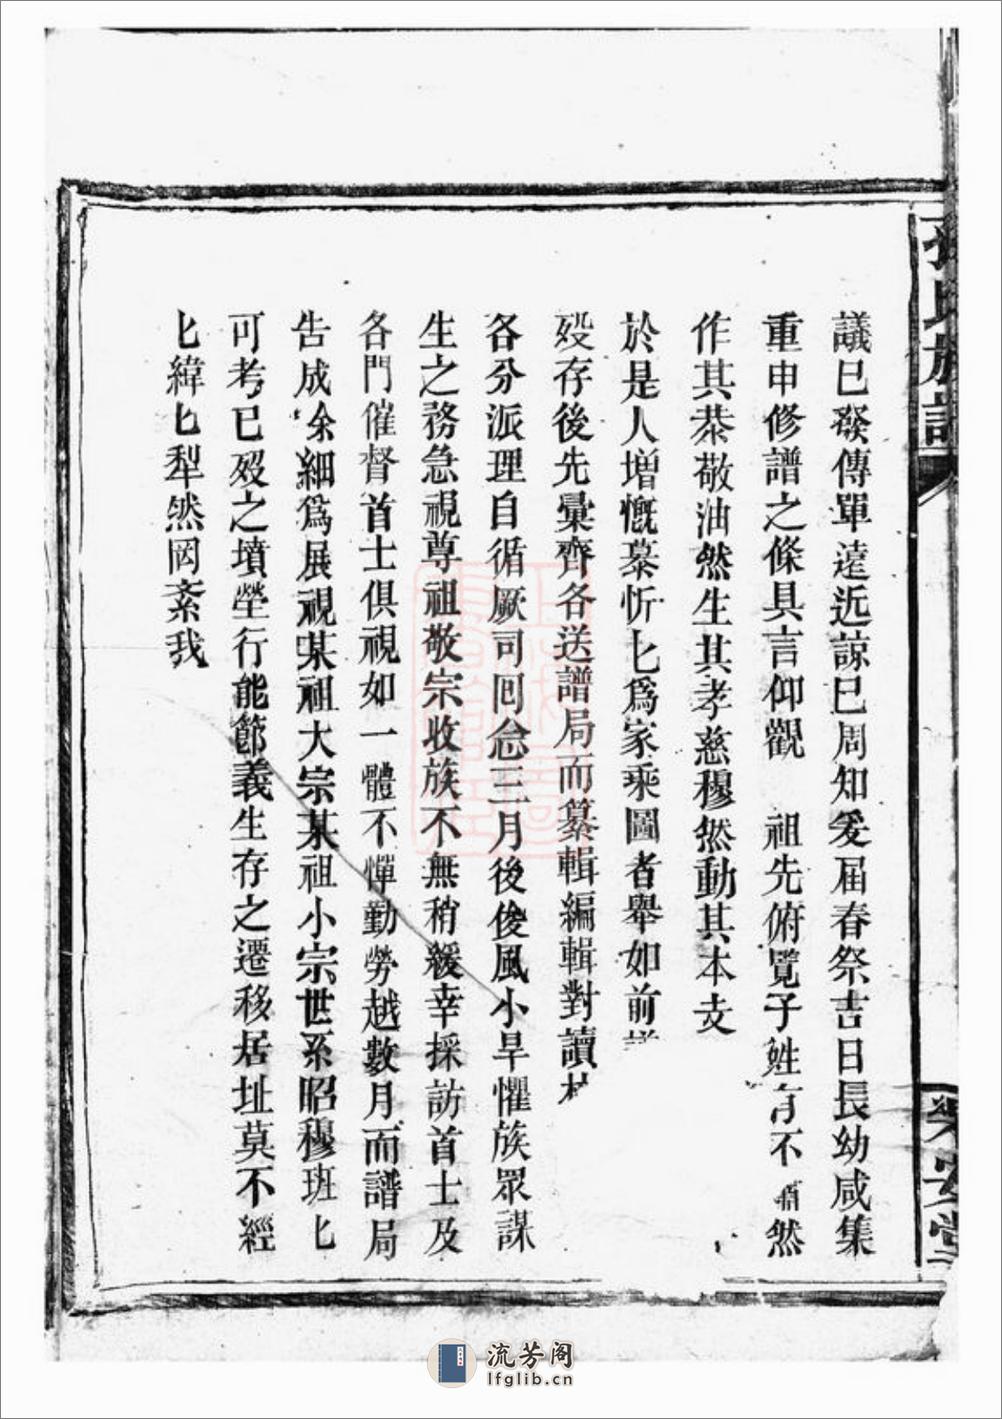 孫氏族譜
議已發傳單遠近諒已周知爰屆春祭吉日長幼咸集
重申修譜之條具言仰觀　祖先俯覽子姓有不　然
作其恭敬油然生其孝慈穆然動其本支
於是人增慨慕忻匕爲家乘圖者舉如前
歿存後先彙齊各送譜局而纂輯編輯對讀
各分派理自循厥司囘念三月後俊風小旱懼族眾謀
生之務急視尊祖敬宗收族不無稍緩幸採訪首士及
各門催督首士俱視如一體不憚勤勞越數月而譜局
告成余細爲展視某祖大宗某祖小宗世系昭穆班匕
可考已歿之墳塋行能節義生存之遷移居址莫不經
匕緯匕犁然罔紊我
安堂
流芳阁
lfglib.cn